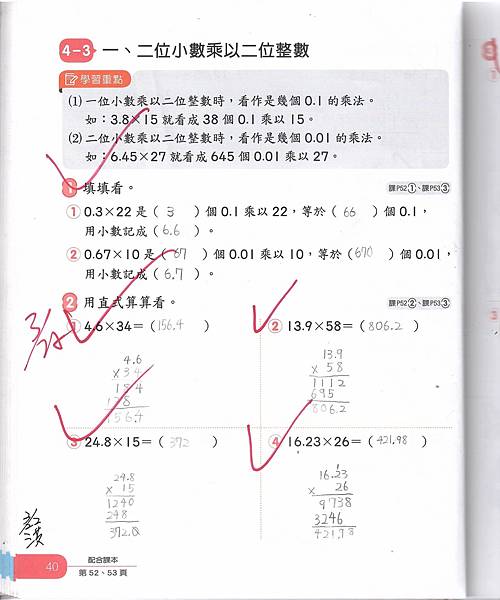 4-3 一、二位小數乘以二位整數
學習重點
(1) 一位小數乘以二位整數時，看作是幾個 0.1 的乘法。
如：3.8×15 就看成 38 個 0.1 乘以 15。
(2) 二位小數乘以二位整數時，看作是幾個 0.01 的乘法。
如：6.45×27 就看成 645 個 0.01 乘以 27。
1 填填看。 課P52①、課P53③
① 0.3×22 是（ 3 ）個 0.1 乘以 22，等於（ 66 ）個 0.1，
用小數記成（ 6.6 ）。
② 0.67×10 是（ 67 ）個 0.01 乘以 10，等於（ 670 ）個 0.01，
用小數記成（ 6.7 ）。
2 用直式算算看。 課P52②、課P53③
① 4.6×34＝（ 156.4 ）
4.6
× 34
184
138
156.4
② 13.9×58＝（ 806.2 ）
13.9
× 58
1112
695
806.2
③ 24.8×15＝（ 372 ）
24.8
× 15
1240
248
372.0
④ 16.23×26＝（ 421.98 ）
16.23
× 26
9738
3246
421.98
40
配合課本
第 52、53 頁